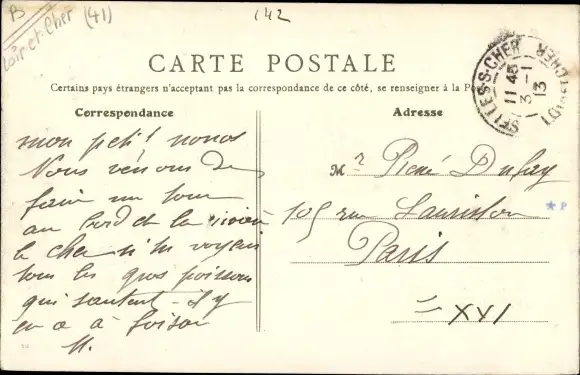 B
Loir-et-Cher (41)
142
CARTE POSTALE
Certains pays étrangers n'acceptant pas la correspondance de ce côté, se renseigner à la Poste
Correspondance
Adresse
SELLES-S-CHER
11 45
3 -1
13
LOIR-ET-CHER
mon petit nonos
Nous venons de
faire un tour
au bord de la rivière
le cher si tu voyais
tous les gros poissons
qui sautent - il y
en a à foison
M.
Mr René Dufay
105 rue Lauriston
Paris
XVI